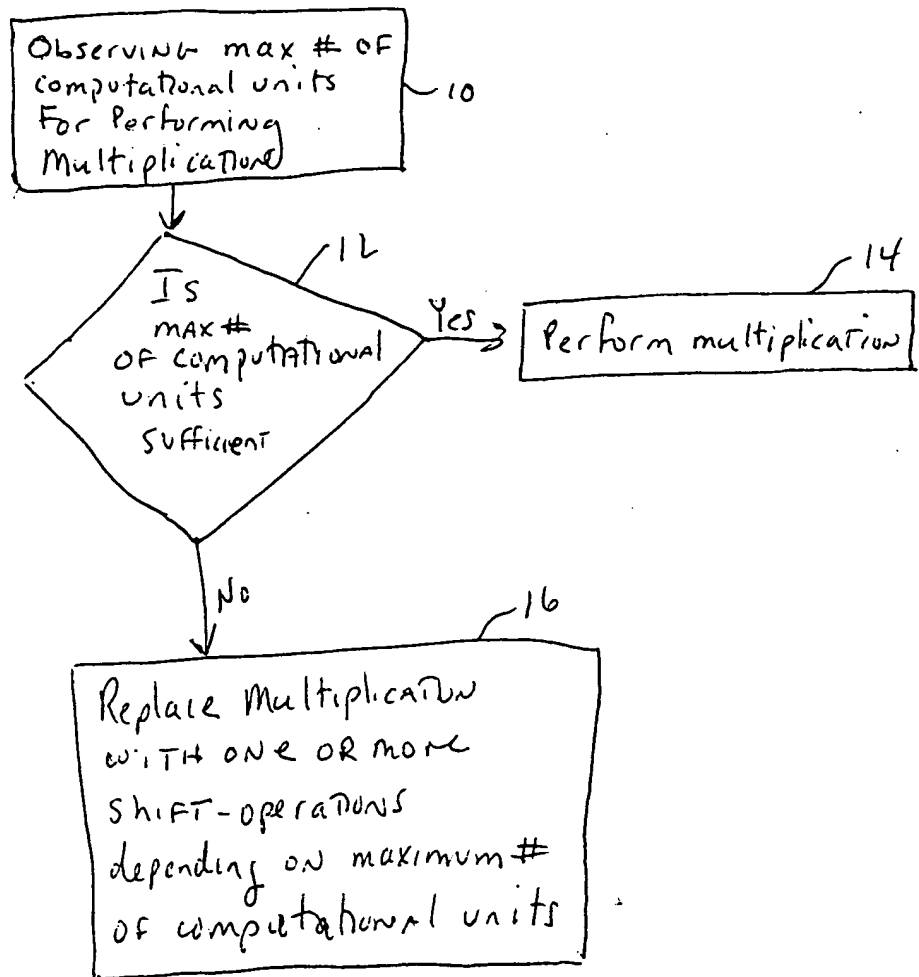 Observing max # of
computational units
For Performing
Multiplication
10
Is
max #
of computational
units
sufficient
12
Yes
Perform multiplication
14
No
Replace Multiplication
with one or more
shift-operations
depending on maximum #
of computational units
16